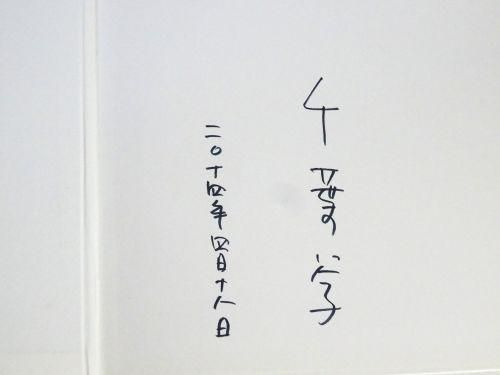 千葉公子
二〇十四年四月十八日